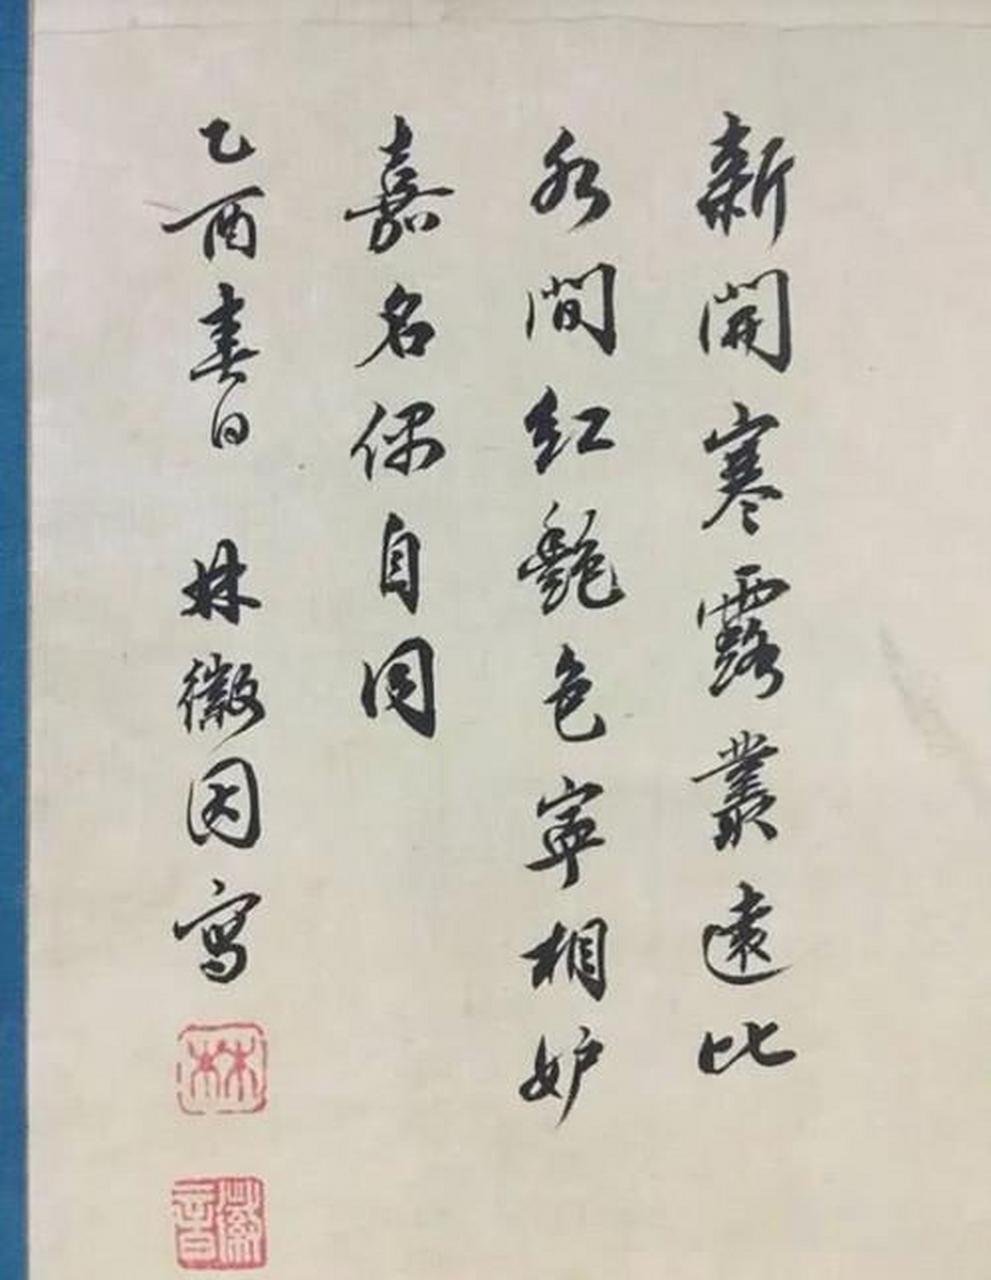 新開寒露叢遠比
水間紅艶色寧相妒
嘉名偶自同
乙酉春日 林徽因寫
林
徽音